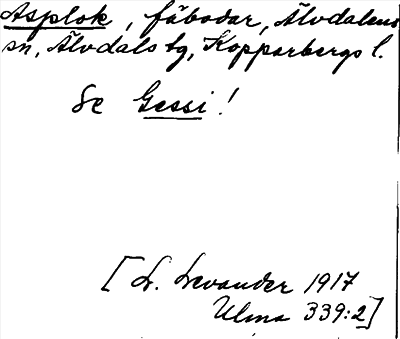 Asplok, fäbodar, Älvdalens
sn, Älvdals tg, Kopparbergs l.
Se Gessi!
[L. Levander 1917
Ulma 339:2]